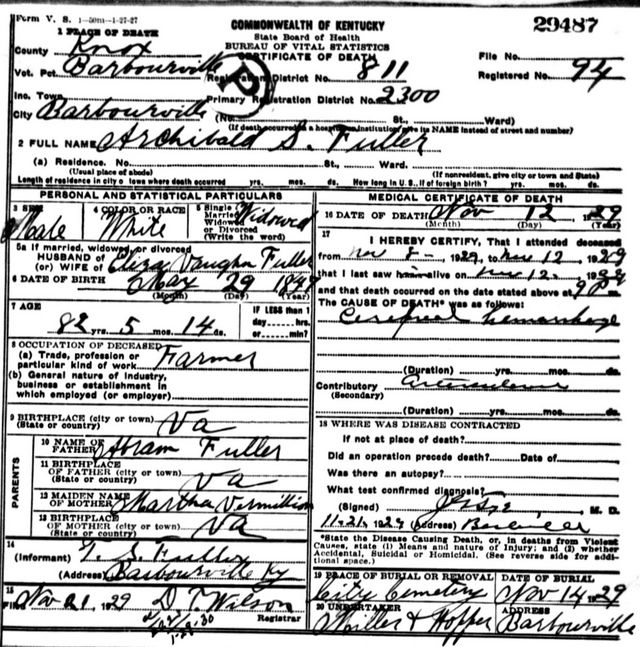 Form V. S. 1-50m-1-27-27
COMMONWEALTH OF KENTUCKY
State Board of Health
BUREAU OF VITAL STATISTICS
CERTIFICATE OF DEATH
29487
1 PLACE OF DEATH
County Knox
File No.
Vot. Pct. Barbourville
Registration District No. 811
Registered No. 94
P
Inc. Town
Primary Registration District No. 2300
City Barbourville (No. St., Ward)
(If death occurred in a hospital or institution give its NAME instead of street and number)
2 FULL NAME Archibald S. Fuller
(a) Residence. No. St., Ward.
(Usual place of abode) (If nonresident, give city or town and State)
Length of residence in city or town where death occurred yrs. mos. ds. How long in U. S., if of foreign birth? yrs. mos. ds.
PERSONAL AND STATISTICAL PARTICULARS
3 SEX Male
4 COLOR OR RACE White
5 Single Married Widowed or Divorced (Write the word) Widowed
5a If married, widowed, or divorced
HUSBAND of
(or) WIFE of Eliza Vaughn Fuller
6 DATE OF BIRTH May 29 1847
(Month) (Day) (Year)
7 AGE
82 yrs. 5 mos. 14 ds.
IF LESS than 1
day hrs.
or min?
8 OCCUPATION OF DECEASED
(a) Trade, profession or
particular kind of work Farmer
(b) General nature of industry,
business or establishment in
which employed (or employer)
9 BIRTHPLACE (city or town)
(State or country) Va
PARENTS
10 NAME OF
FATHER Abram Fuller
11 BIRTHPLACE
OF FATHER (city or town)
(State or country) Va
12 MAIDEN NAME
OF MOTHER Martha Vermillion
13 BIRTHPLACE
OF MOTHER (city or town)
(State or country) Va
14
(Informant) Fuller
(Address) Barbourville Ky
15
Filed Nov 21, 1929 D. T. Wilson
Registrar
MEDICAL CERTIFICATE OF DEATH
16 DATE OF DEATH Nov 12 1929
(Month) (Day) (Year)
17
I HEREBY CERTIFY, That I attended deceased
from Nov 8 - 1929, to Nov 12, 1929
that I last saw him alive on Nov 12, 1929
and that death occurred on the date stated above at 9 P m.
The CAUSE OF DEATH* was as follows:
Cerebral hemorrhage
(Duration) yrs. mos. ds.
Contributory
(Secondary)
(Duration) yrs. mos. ds.
18 WHERE WAS DISEASE CONTRACTED
If not at place of death?
Did an operation precede death? Date of
Was there an autopsy?
What test confirmed diagnosis?
(Signed) M. D.
11-21, 1929 (Address)
*State the Disease Causing Death, or, in deaths from Violent
Causes, state (1) Means and nature of Injury; and (2) whether
Accidental, Suicidal or Homicidal. (See reverse side for addi-
tional space.)
19 PLACE OF BURIAL OR REMOVAL
City Cemetery
DATE OF BURIAL
Nov 14 1929
20 UNDERTAKER
Miller & Hopper
ADDRESS
Barbourville